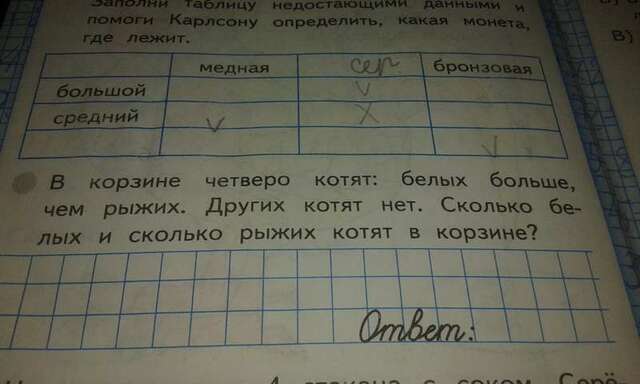 Заполни таблицу недостающими данными и
помоги Карлсону определить, какая монета,
где лежит.
медная сер. бронзовая
большой V
средний V X
V
В корзине четверо котят: белых больше,
чем рыжих. Других котят нет. Сколько бе-
лых и сколько рыжих котят в корзине?
Ответ:
4 стакана с соком
В)